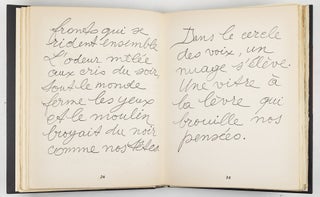 fronts qui se
rident ensemble
L'odeur mêlée
aux cris du soir,
tout le monde
ferme les yeux
et le moulin
broyait du noir
comme nos têtes
24
Dans le cercle
des voix, un
nuage s'élève.
Une vitre à
la lèvre qui
brouille nos
pensées.